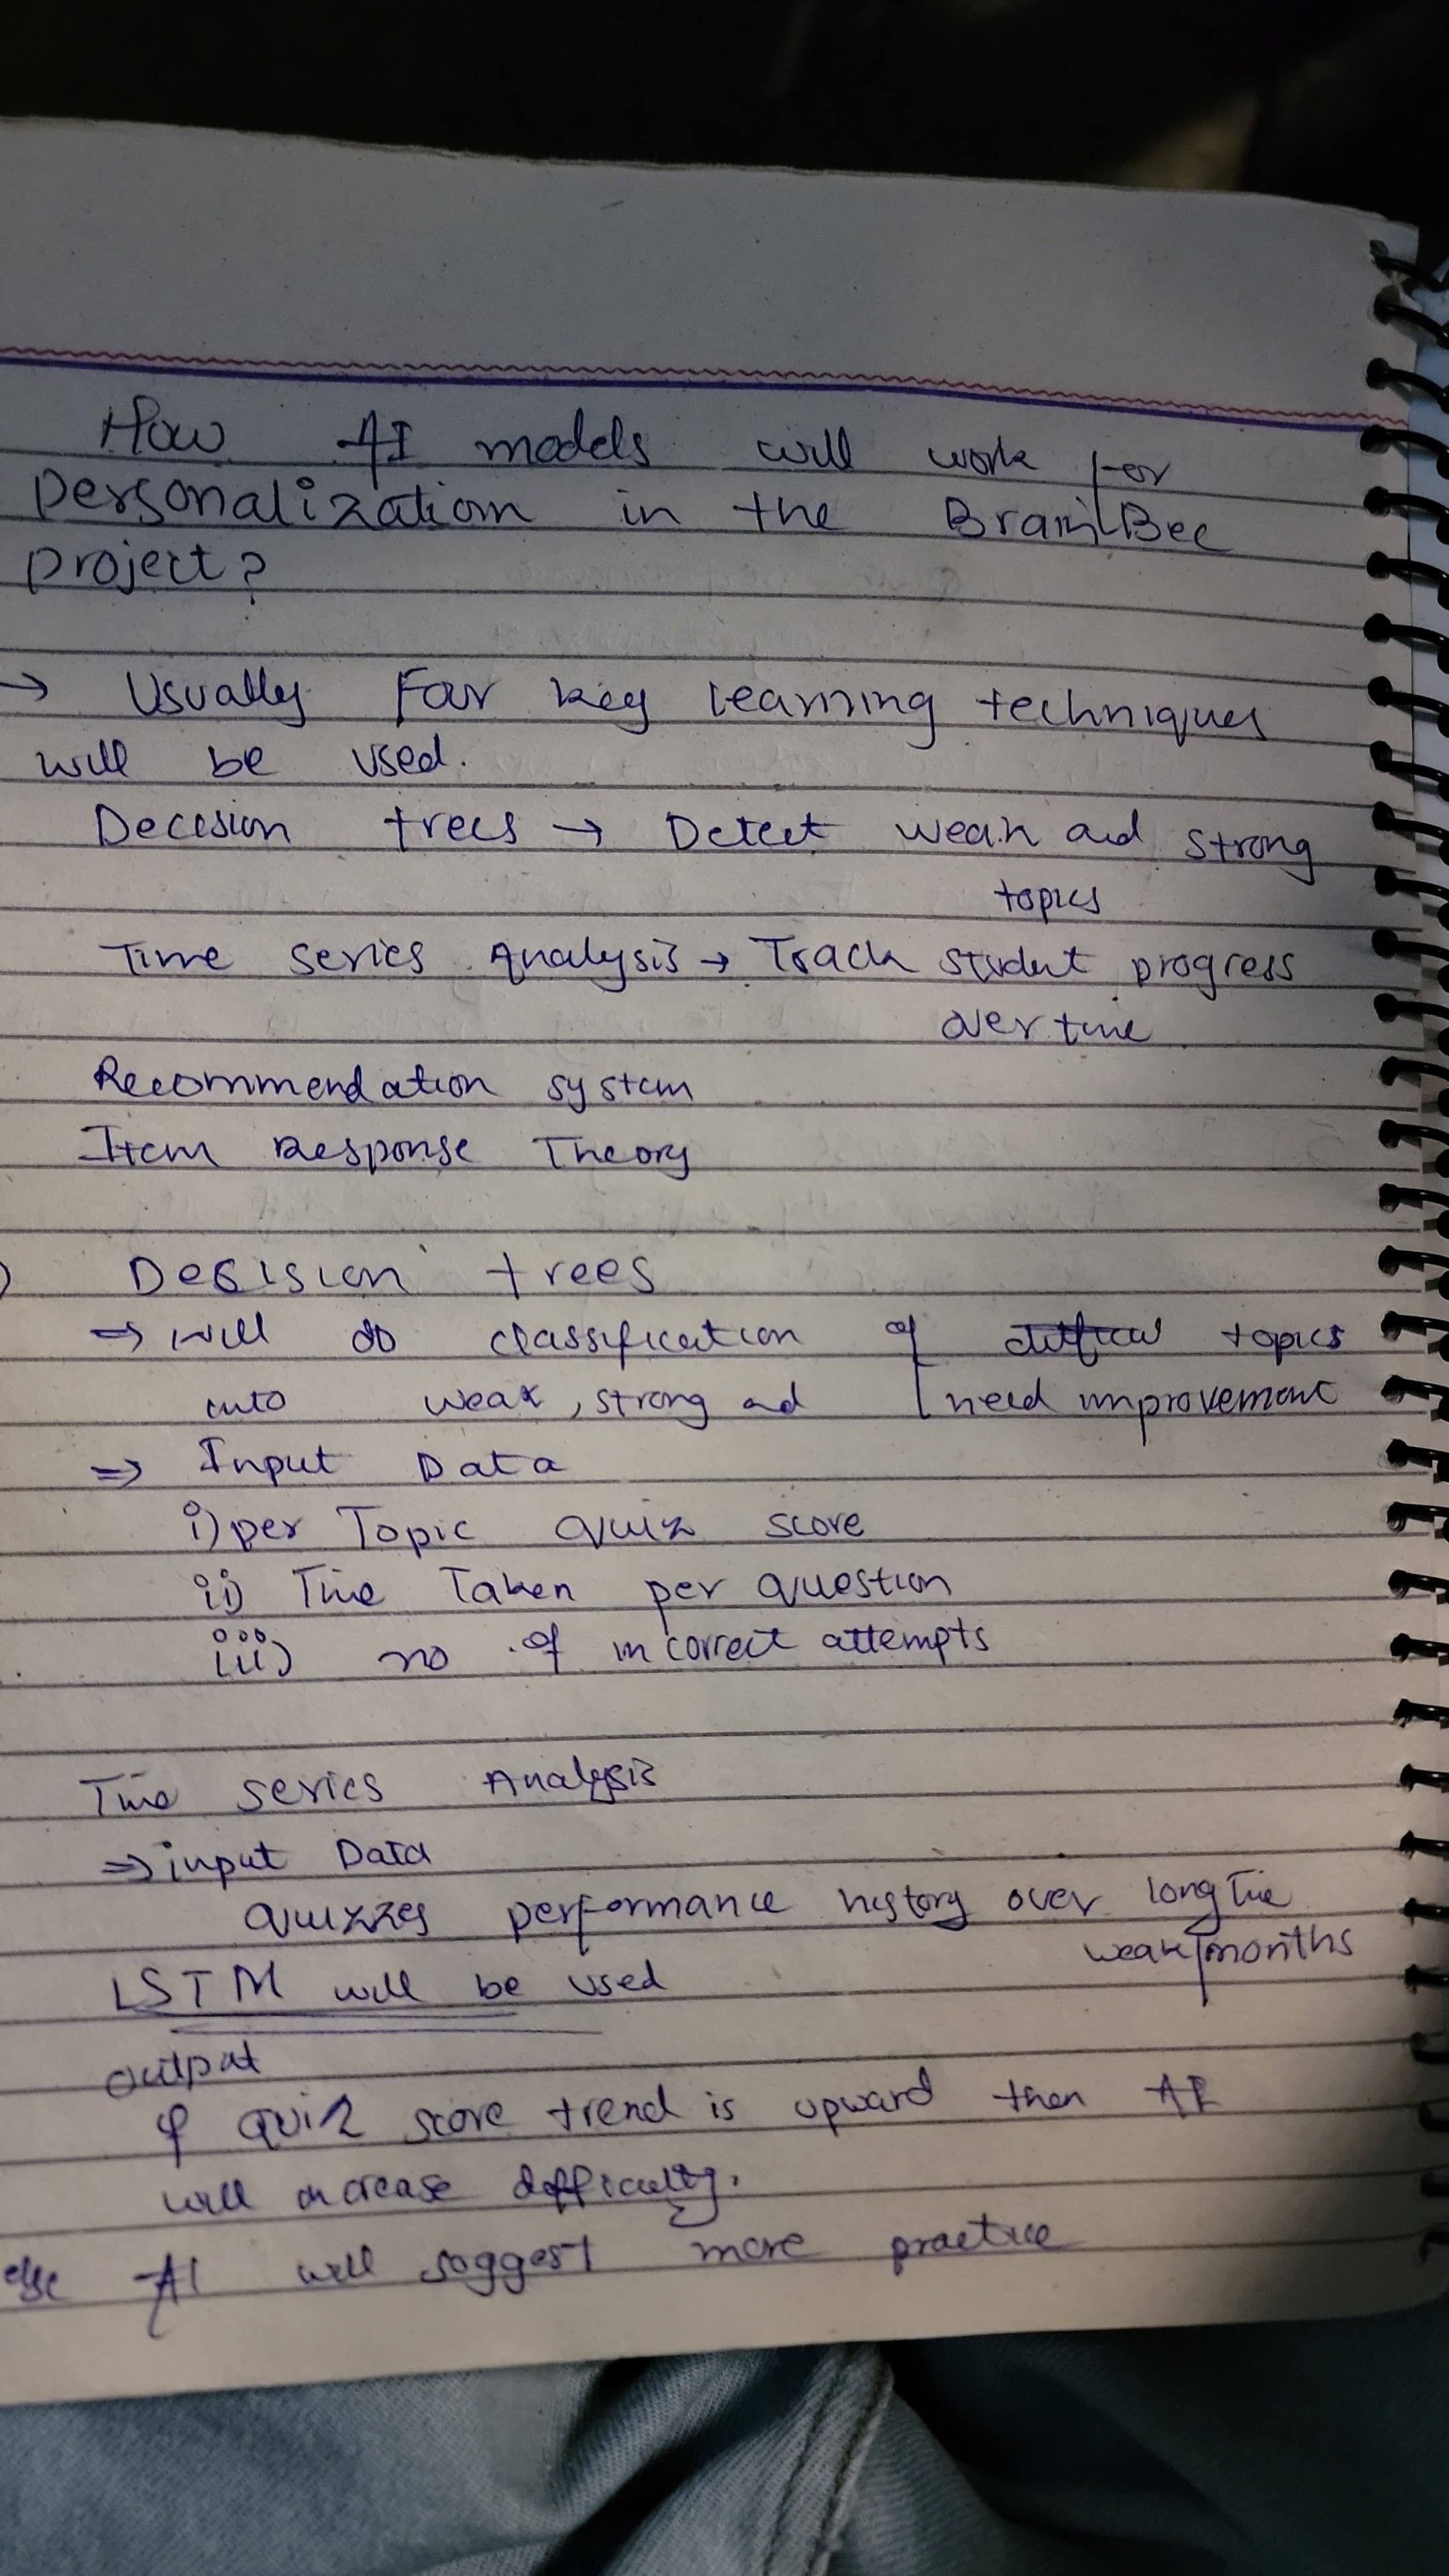 How AI models will work for
personalization in the BrainBee
project?
→ Usually Four key learning techniques
will be used.
Decision trees → Detect weak and strong
topics
Time series Analysis → Track student progress
over time
Recommendation system
Item Response Theory
) Decision trees
⇒ will do classification of topics
into weak, strong and need improvement
⇒ Input Data
i) per Topic quiz score
ii) Time Taken per question
iii) no of incorrect attempts
Time series Analysis
⇒ input Data
quizzes performance history over long time
weak/months
LSTM will be used
output
if quiz score trend is upward then AI
will increase difficulty.
else AI will suggest more practice